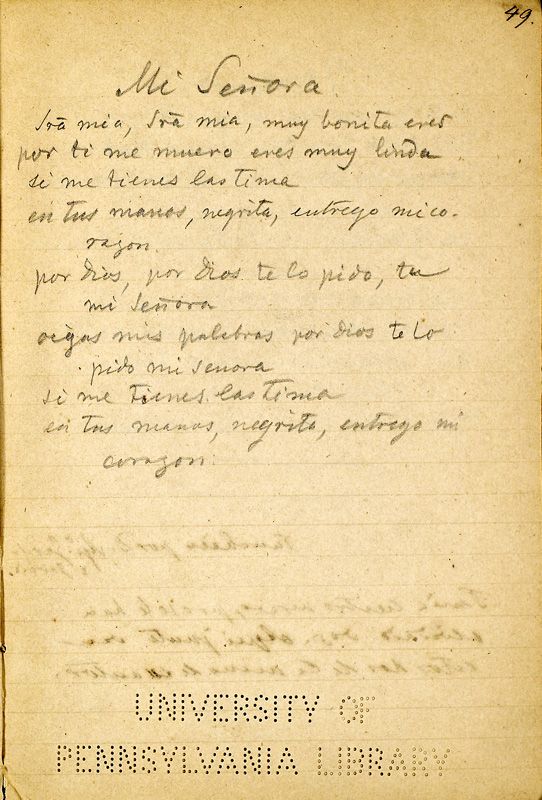 49.
Mi Señora
Srã mia, Srã mia, muy bonita eres
por ti me muero eres muy linda
si me tienes lastima
en tus manos, negrita, entrego mi co-
razon.
por dios, por dios te lo pido, tu
mi Señora
oigas mis palabras por dios te lo
pido mi senora
si me tienes lastima
en tus manos, negrita, entrego mi
corazon.
UNIVERSITY OF
PENNSYLVANIA LIBRARY